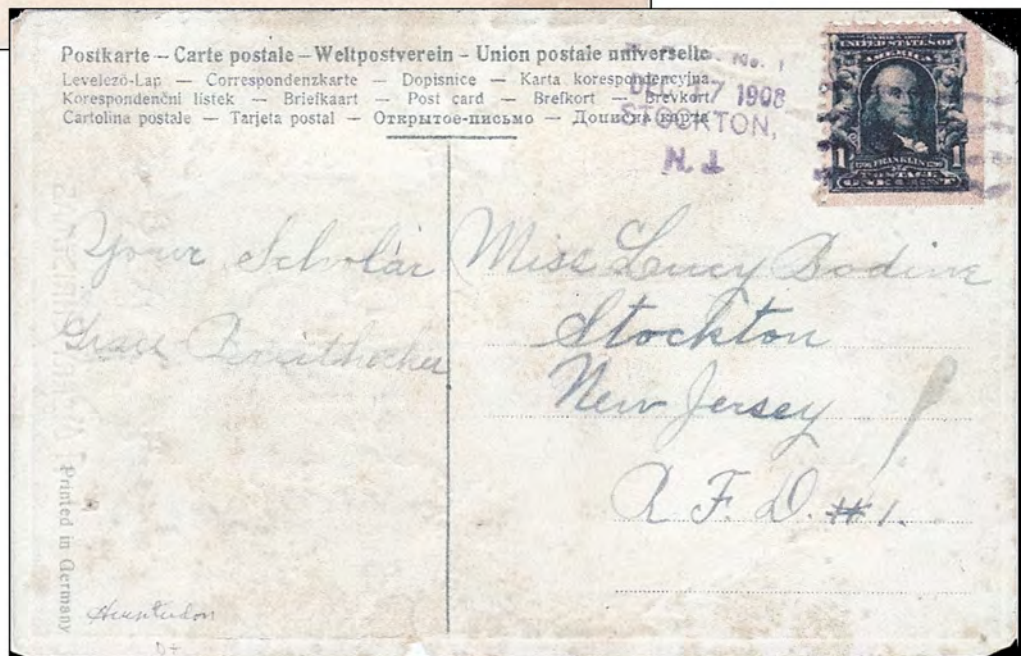 Postkarte – Carte postale – Weltpostverein – Union postale universelle
Levelező-Lap — Correspondenzkarte — Dopisnice — Karta korespondencyjna
Korespondenční listek — Briefkaart — Post card — Brefkort — Brevkort
Cartolina postale — Tarjeta postal — Открытое-письмо — Дописна карта
No. 1
DEC 17 1908
STOCKTON,
N. J.
UNITED STATES OF
AMERICA
1 1706 FRANKLIN 1790 1
POSTAGE
ONE CENT
Your Scholar
Grace
Miss Lucy Bodine
Stockton
New Jersey
R. F. D. #1.
Printed in Germany